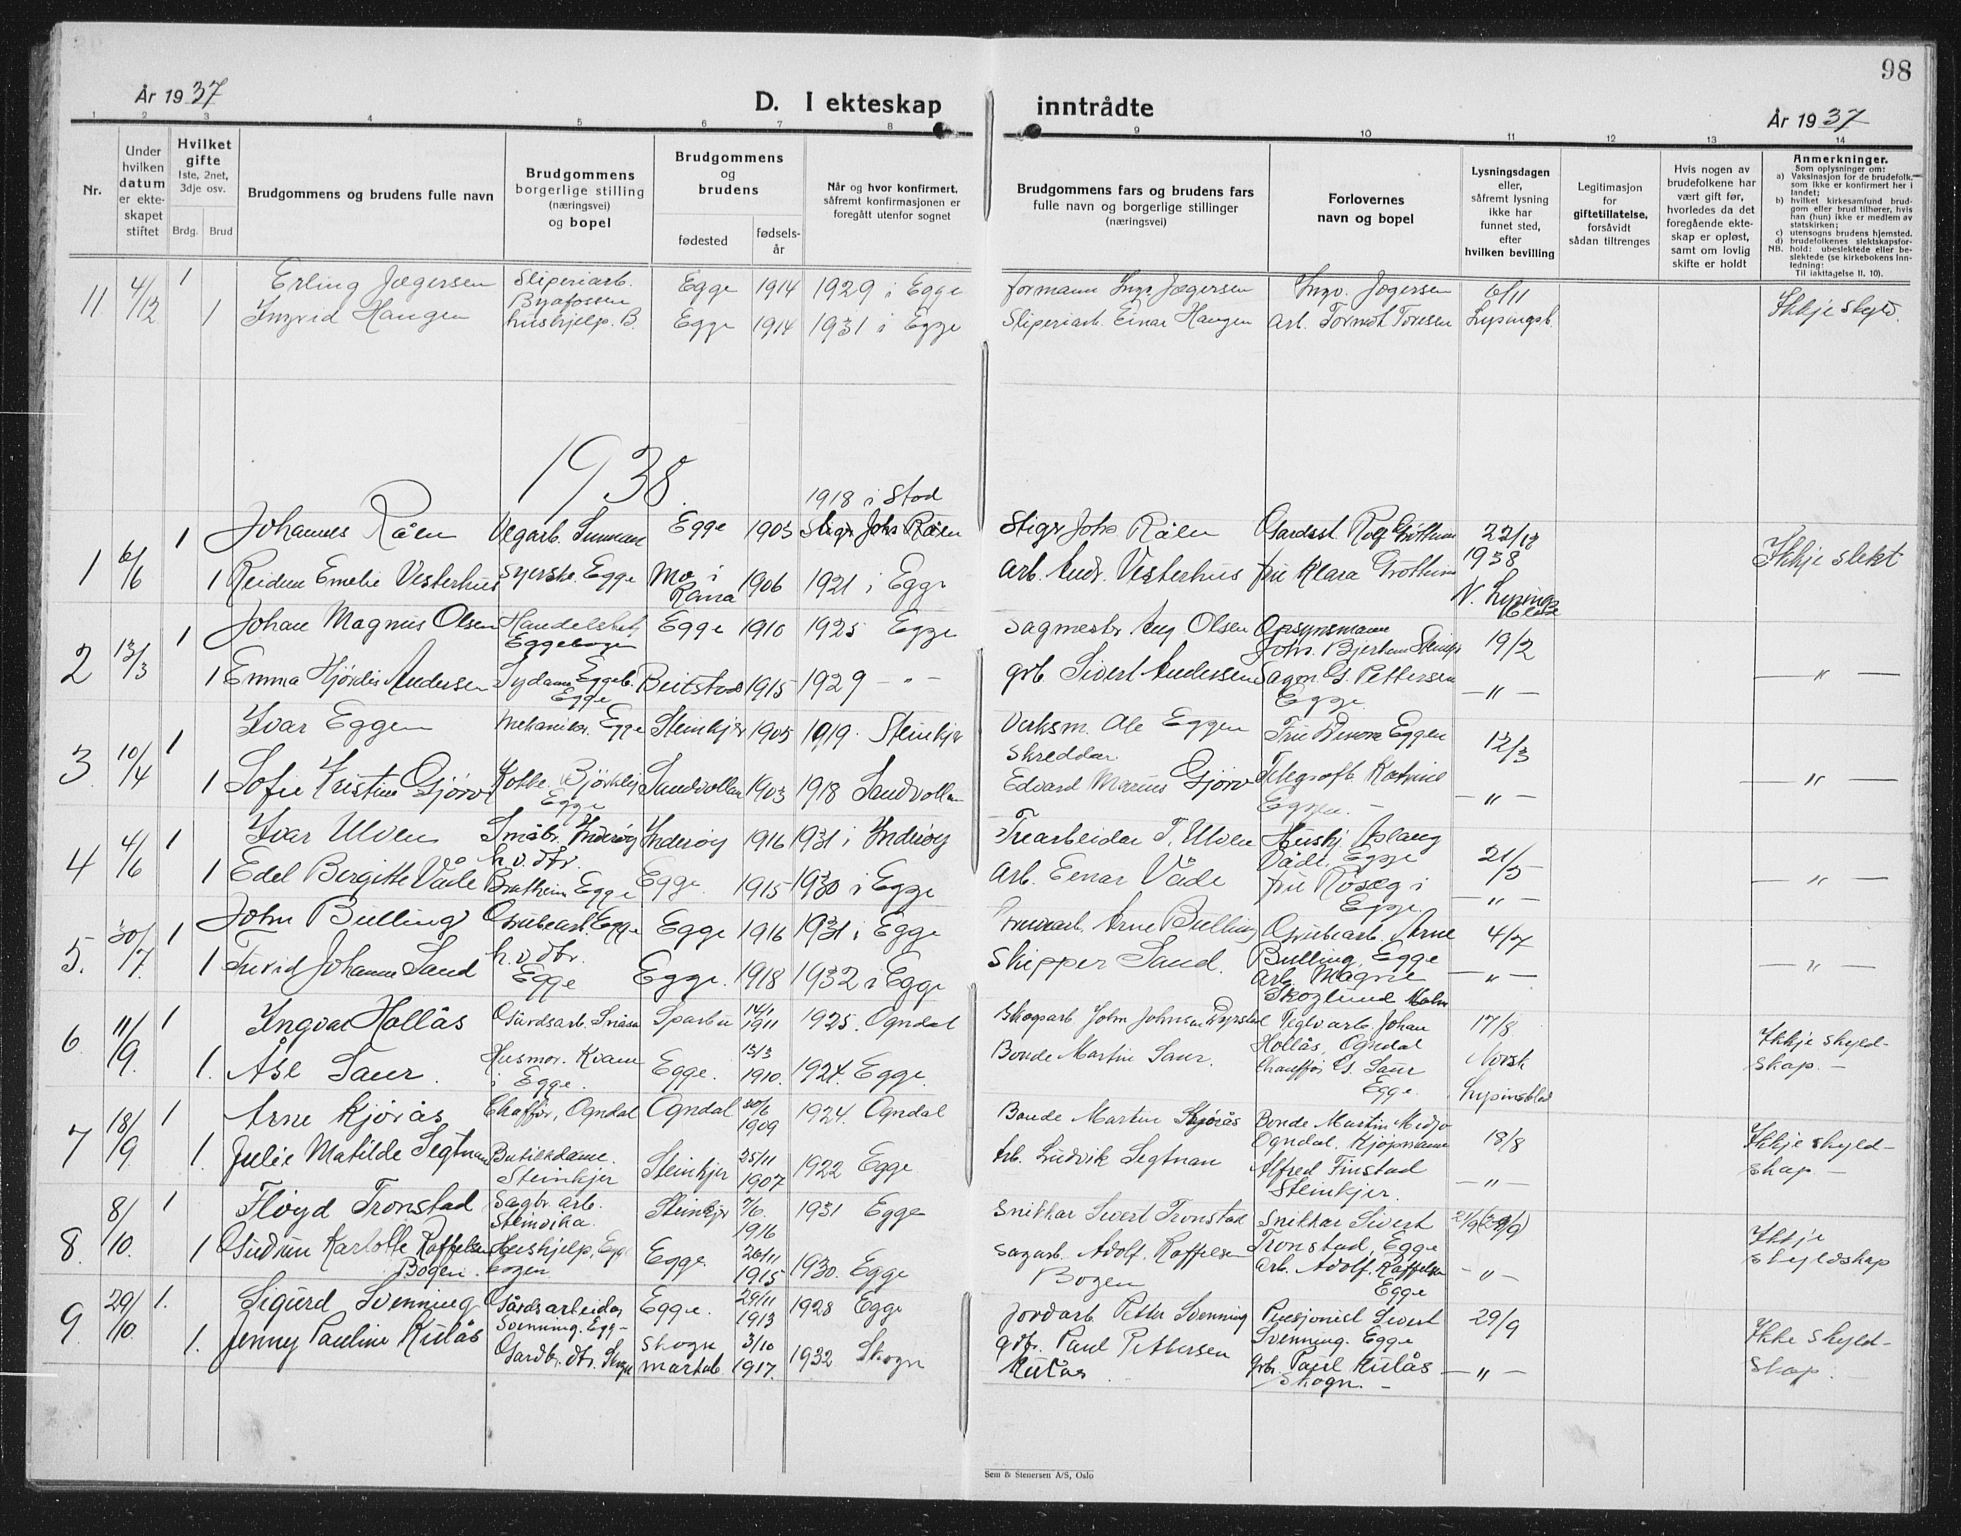 98
År 1937
D. I ekteskap inntrådte
År 1937
1 2 3 4 5 6 7 8 9 10 11 12 13 14
Nr.
Under hvilken datum er ekteskapet stiftet
Hvilket gifte 1ste, 2net, 3dje osv.
Brdg. Brud
Brudgommens og brudens fulle navn
Brudgommens borgerlige stilling (næringsvei) og bopel
Brudgommens og brudens
fødested
fødselsår
Når og hvor konfirmert, såfremt konfirmasjonen er foregått utenfor sognet
Brudgommens fars og brudens fars fulle navn og borgerlige stillinger (næringsvei)
Forlovernes navn og bopel
Lysningsdagen eller, såfremt lysning ikke har funnet sted, efter hvilken bevilling
Legitimasjon for giftetillatelse, forsåvidt sådan tiltrenges
Hvis nogen av brudefolkene har vært gift før, hvorledes da det foregående ekteskap er opløst, samt om lovlig skifte er holdt
Anmerkninger.
Som oplysninger om:
a) Vaksinasjon for de brudefolk, som ikke er konfirmert her i landet;
b) hvilket kirkesamfund brudgom eller brud tilhører, hvis han (hun) ikke er medlem av statskirken;
c) utensogns brudens hjemsted.
d) brudefolkenes slektskapsforhold: ubeslektede eller beslektede (se kirkebokens innledning:
NB. Til iakttagelse II. 10).
11 4/12 1 Erling Jægersen Sliperiarb. Byafossen Egge 1914 1929 i Egge formann Ingv Jægersen Ingv. Jægersen 6/11 Ikkje skyld.
1 Ingrid Haugen hushjelp. B. Egge 1914 1931 i Egge Sliperiarb. Einar Haugen arb. Tormod Toresen Lysingsb.
1938.
1918 i Stod
1 6/6 1 Johannes Råen Vegarb. Sunnan Egge 1903 Stigr Johs Råen Stigr Johs Råen Gardsst Rolf Grøthum 22/12 1938 Ikkje slekt
1 Reidun Emelie Vesterhus Syerske. Egge Mo i Rana 1906 1921 i Egge Arb. Andr. Vesterhus fru Klara Grøthum N. Lysings blad
2 13/3 1 Johan Magnus Olsen Handelsbet. Eggebogen Egge 1910 1925 Egge Sagmester Aug Olsen Opsynsmann Johs. Bjerkem Steinkjer 19/2
1 Emma Hjørdis Andersen Sydame Eggeb. Egge Beitstad 1915 1929 — " — grb. Sivert Andersen Sagm. G. Pettersen Egge — " — — " —
3 10/4 1 Ivar Eggen Mekaniker. Egge Steinkjer 1905 1919. Steinkjer Verksm. Ole Eggen Fru Eggen 12/3
1 Sofie Kristine Gjørv Kokke Bjørklij Egge Sandvollan 1903 1918 Sandvollan Skreddar Edvard Marius Gjørv Telegrafb Katrine Eggen — — " — — " —
4 4/6 1 Ivar Ulven Småbr. Inderøy Inderøy 1916 1931 i Inderøy Trearbeidar T. Ulven Huskj Aslaug Våde, Egge 21/5
1 Edel Birgitte Våde h. v. dtr. Bratheim Egge Egge. 1915 1930 i Egge Arb. Einar Våde fru Rosæg i Egge — " — — " —
5. 30/7. 1 John Bulling Grubearb. Egge Egge 1916 1931 i Egge Arne Bulling Grubearb. Arne Bulling, Egge 4/7
1 Turid Johanne Sand h. v dtr. Egge Egge. 1918 1932 i Egge Skipper Sand. Arb. Magne Skoglund Malm — " — — " —
6 11/9. 1 Ingvar Hollås Gårdsarb. Snåsa Sparbu 14/1 1911 1925. Ogndal Skogsarb John Johnsen Vegtv arb. Johan Hollås, Ogndal 17/8 Ikkje skyldskap. —
1. Åse Saur. Husmor. Kvam i Egge. Egge. 13/3 1910. 1924. Egge. Bonde Martin Saur. Chauffør G. Saur Egge. Norsk Lysingsblad
7 18/9. 1 Arne Kjørås Chaffør, Ogndal Ogndal 30/6 1909 1924. Ogndal Bonde Martin Kjørås Bonde Martin Midjo Ogndal. 18/8 Ikkje skyldskap —
1. Julie Matilde Segtnan Butikkdame. Steinkjer Steinkjer 25/11 1907 1922 Egge Arb. Ludvik Segtnan Kjøpmann Alfred Finstad Steinkjer. — " —
8. 8/10. 1 Floyd Tronstad Sagbr. arb. Steinvika. Steinkjer 7/6. 1916 1931 Egge Snikkar Sivert Tronstad Snikkar Sivert Tronstad, Egge 21/9 (29/9) Ikkje skyldskap
1 Gudrun Karlotte Raffelsen Bogen. Hushjelp, Eggebogen Egge. 26/11 1915 1930. Egge Sagarb. Adolf. Raffelsen Bogen Arb. Adolf. Raffelsen Egge — " —
9 29/10. 1. Sigurd Svenning Gårdsarbeidar Svenning. Egge Egge. 29/11 1913 1928 Egge Jordarb Petter Svenning Pensjonist Sivert Svenning. Egge 29/9 Ikke skyldskap.
1. Jenny Pauline Kulås Gardbr. dtr. Skogn Skogn 3/10 1917. 1932 Skogn grb. Paul Pettersen Kulås grb. Paul Kulås Skogn. — — " —
Sem & Stenersen A/S, Oslo